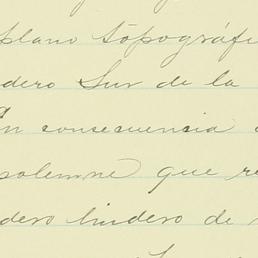 plano topográfi
dero Sur de la
En consecuencia
solemne que re
dero lindero de